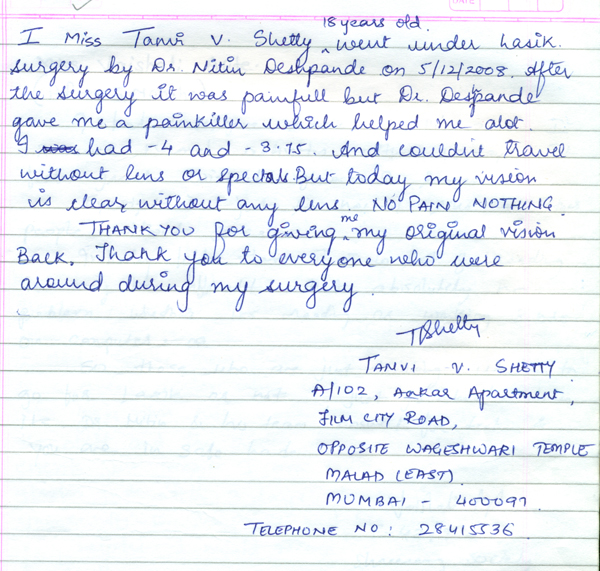 18 years old.
I Miss Tanvi V. Shetty ^ went under hasik.
surgery by Dr. Nitin Deshpande on 5/12/2008. After
the surgery it was painfull but Dr. Despande
gave me a painkiller which helped me alot.
I was had -4 and -3.75. And couldn't travel
without lens or specials. But today my vision
is clear, without any lens. NO PAIN NOTHING.
THANK YOU for giving ^ me my original vision
Back. Thank you to everyone who were
around during my surgery.
TBShetty
TANVI V. SHETTY
A/102, Aakar Apartment,
FILM CITY ROAD,
OPPOSITE WAGESHWARI TEMPLE
MALAD (EAST)
MUMBAI - 400097
TELEPHONE NO: 28415536